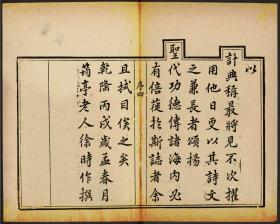 以
計典稱最將見不次擢
用他日更以其詩文
之兼長者頌揚
聖代功德傳諸海內必
有倍蓰於斯誌者余
序四
且拭目俟之矣
乾隆丙戌歲孟春月
筠亭老人徐時作撰